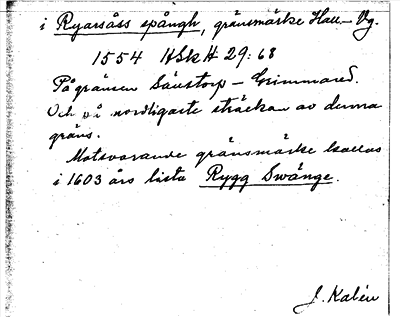 i Ryaråss spångh, gränsmärke Hall-Vg.
1554 HSkH 29:68
På gränsen Sävstorp - Grimmared.
Och på nordligaste sträckan av denna
gräns.
Motsvarande gränsmärke kallas
i 1603 års lista Rygg Swänge.
J. Kalén